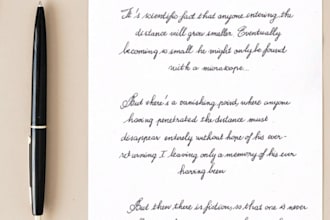 It's scientific fact that anyone entering the
distance will grow smaller. Eventually
becoming so small he might only be found
with a microscope...
But there's a vanishing point, where anyone
having penetrated the distance must
disappear entirely without hope of his ever
returning, leaving only a memory of his ever
having been
But then there is fiction, so that one is never